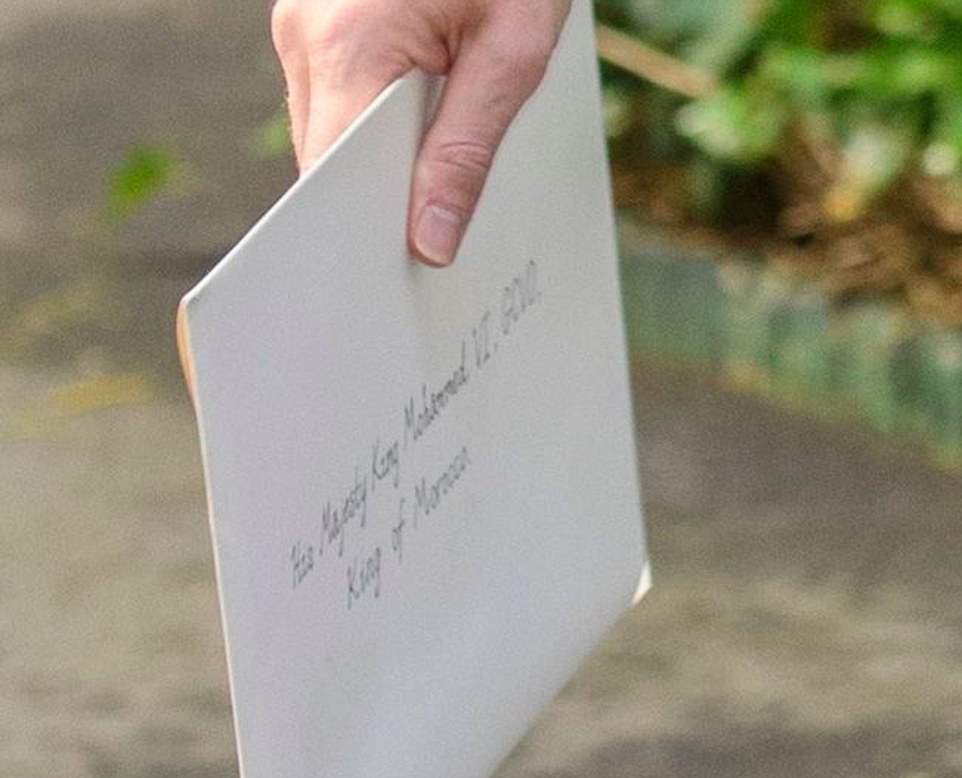 His Majesty King Mohammed VI, GCVO,
King of Morocco